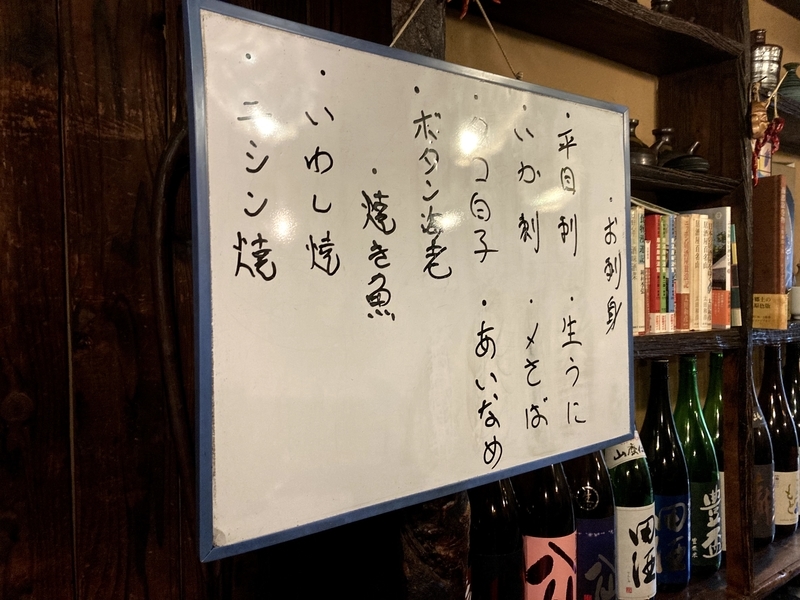 ・お刺身
・平目刺
・生うに
・いか刺
・〆さば
・タコ白子
・あいなめ
・ボタン海老
・焼き魚
・いわし焼
・ニシン焼
田酒
田酒
豊盃